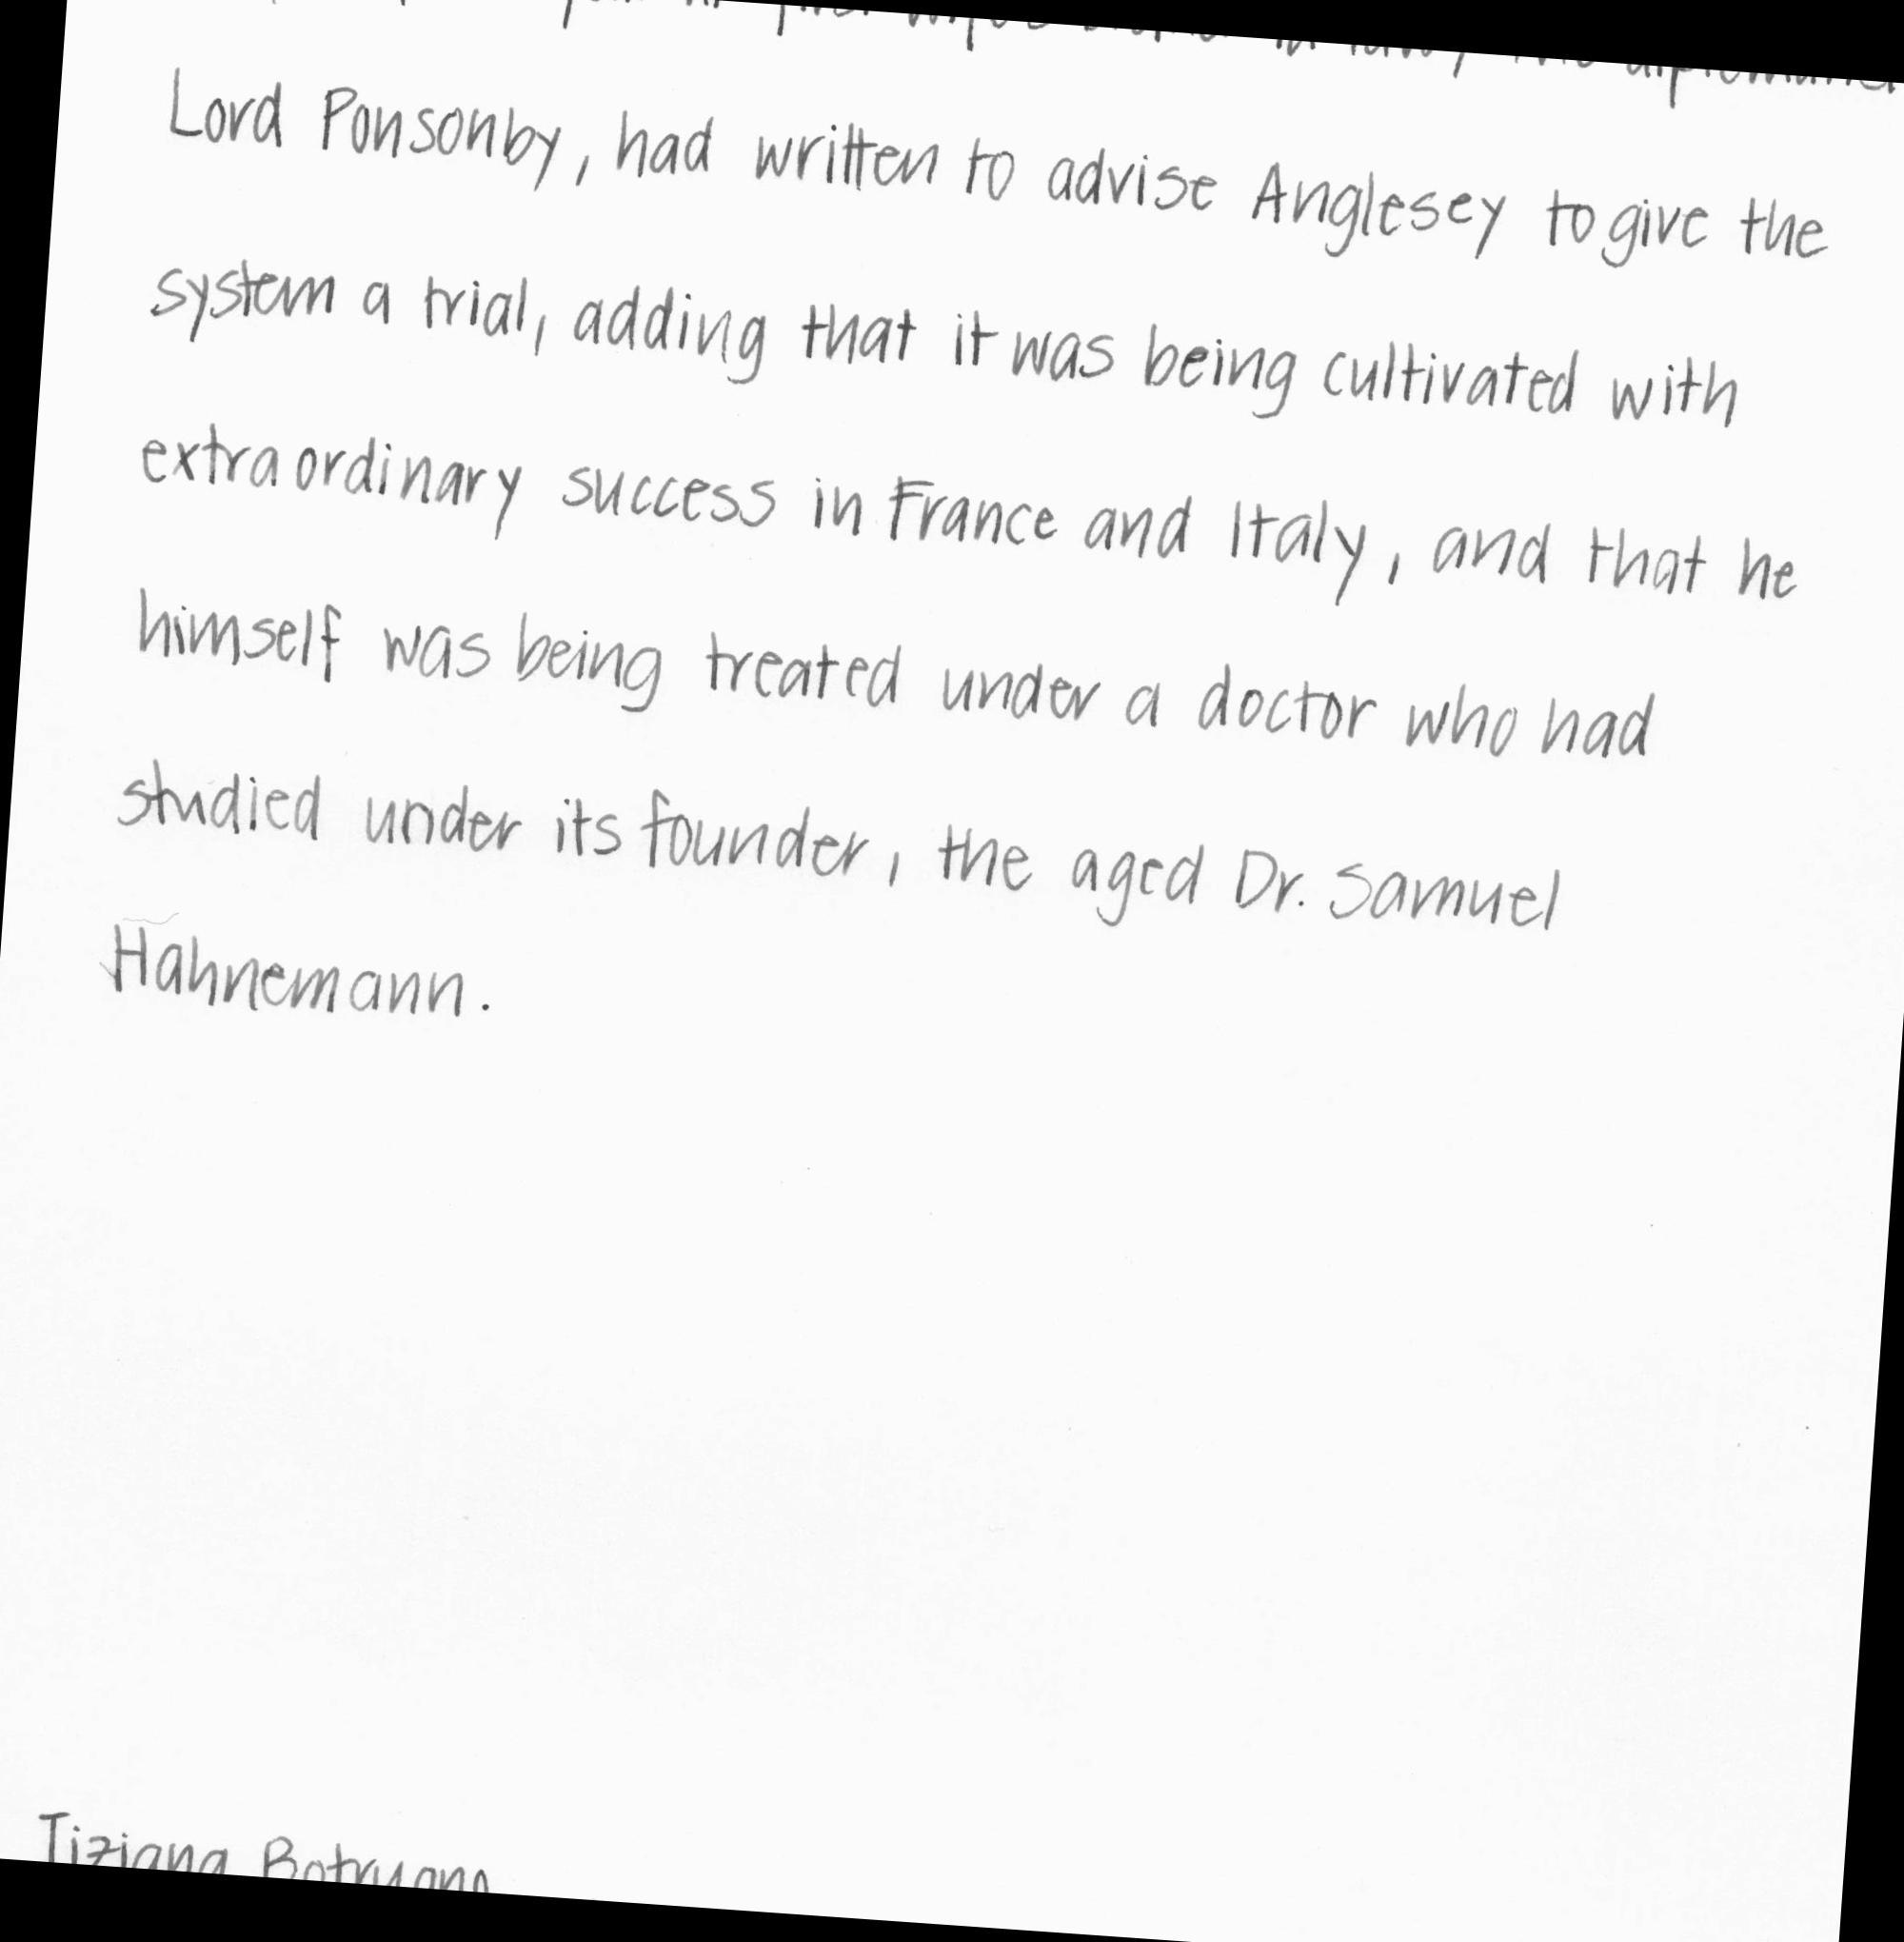 Lord Ponsonby, had written to advise Anglesey to give the
system a trial, adding that it was being cultivated with
extraordinary success in France and Italy, and that he
himself was being treated under a doctor who had
studied under its founder, the aged Dr. Samuel
Hahnemann.
Tiziana